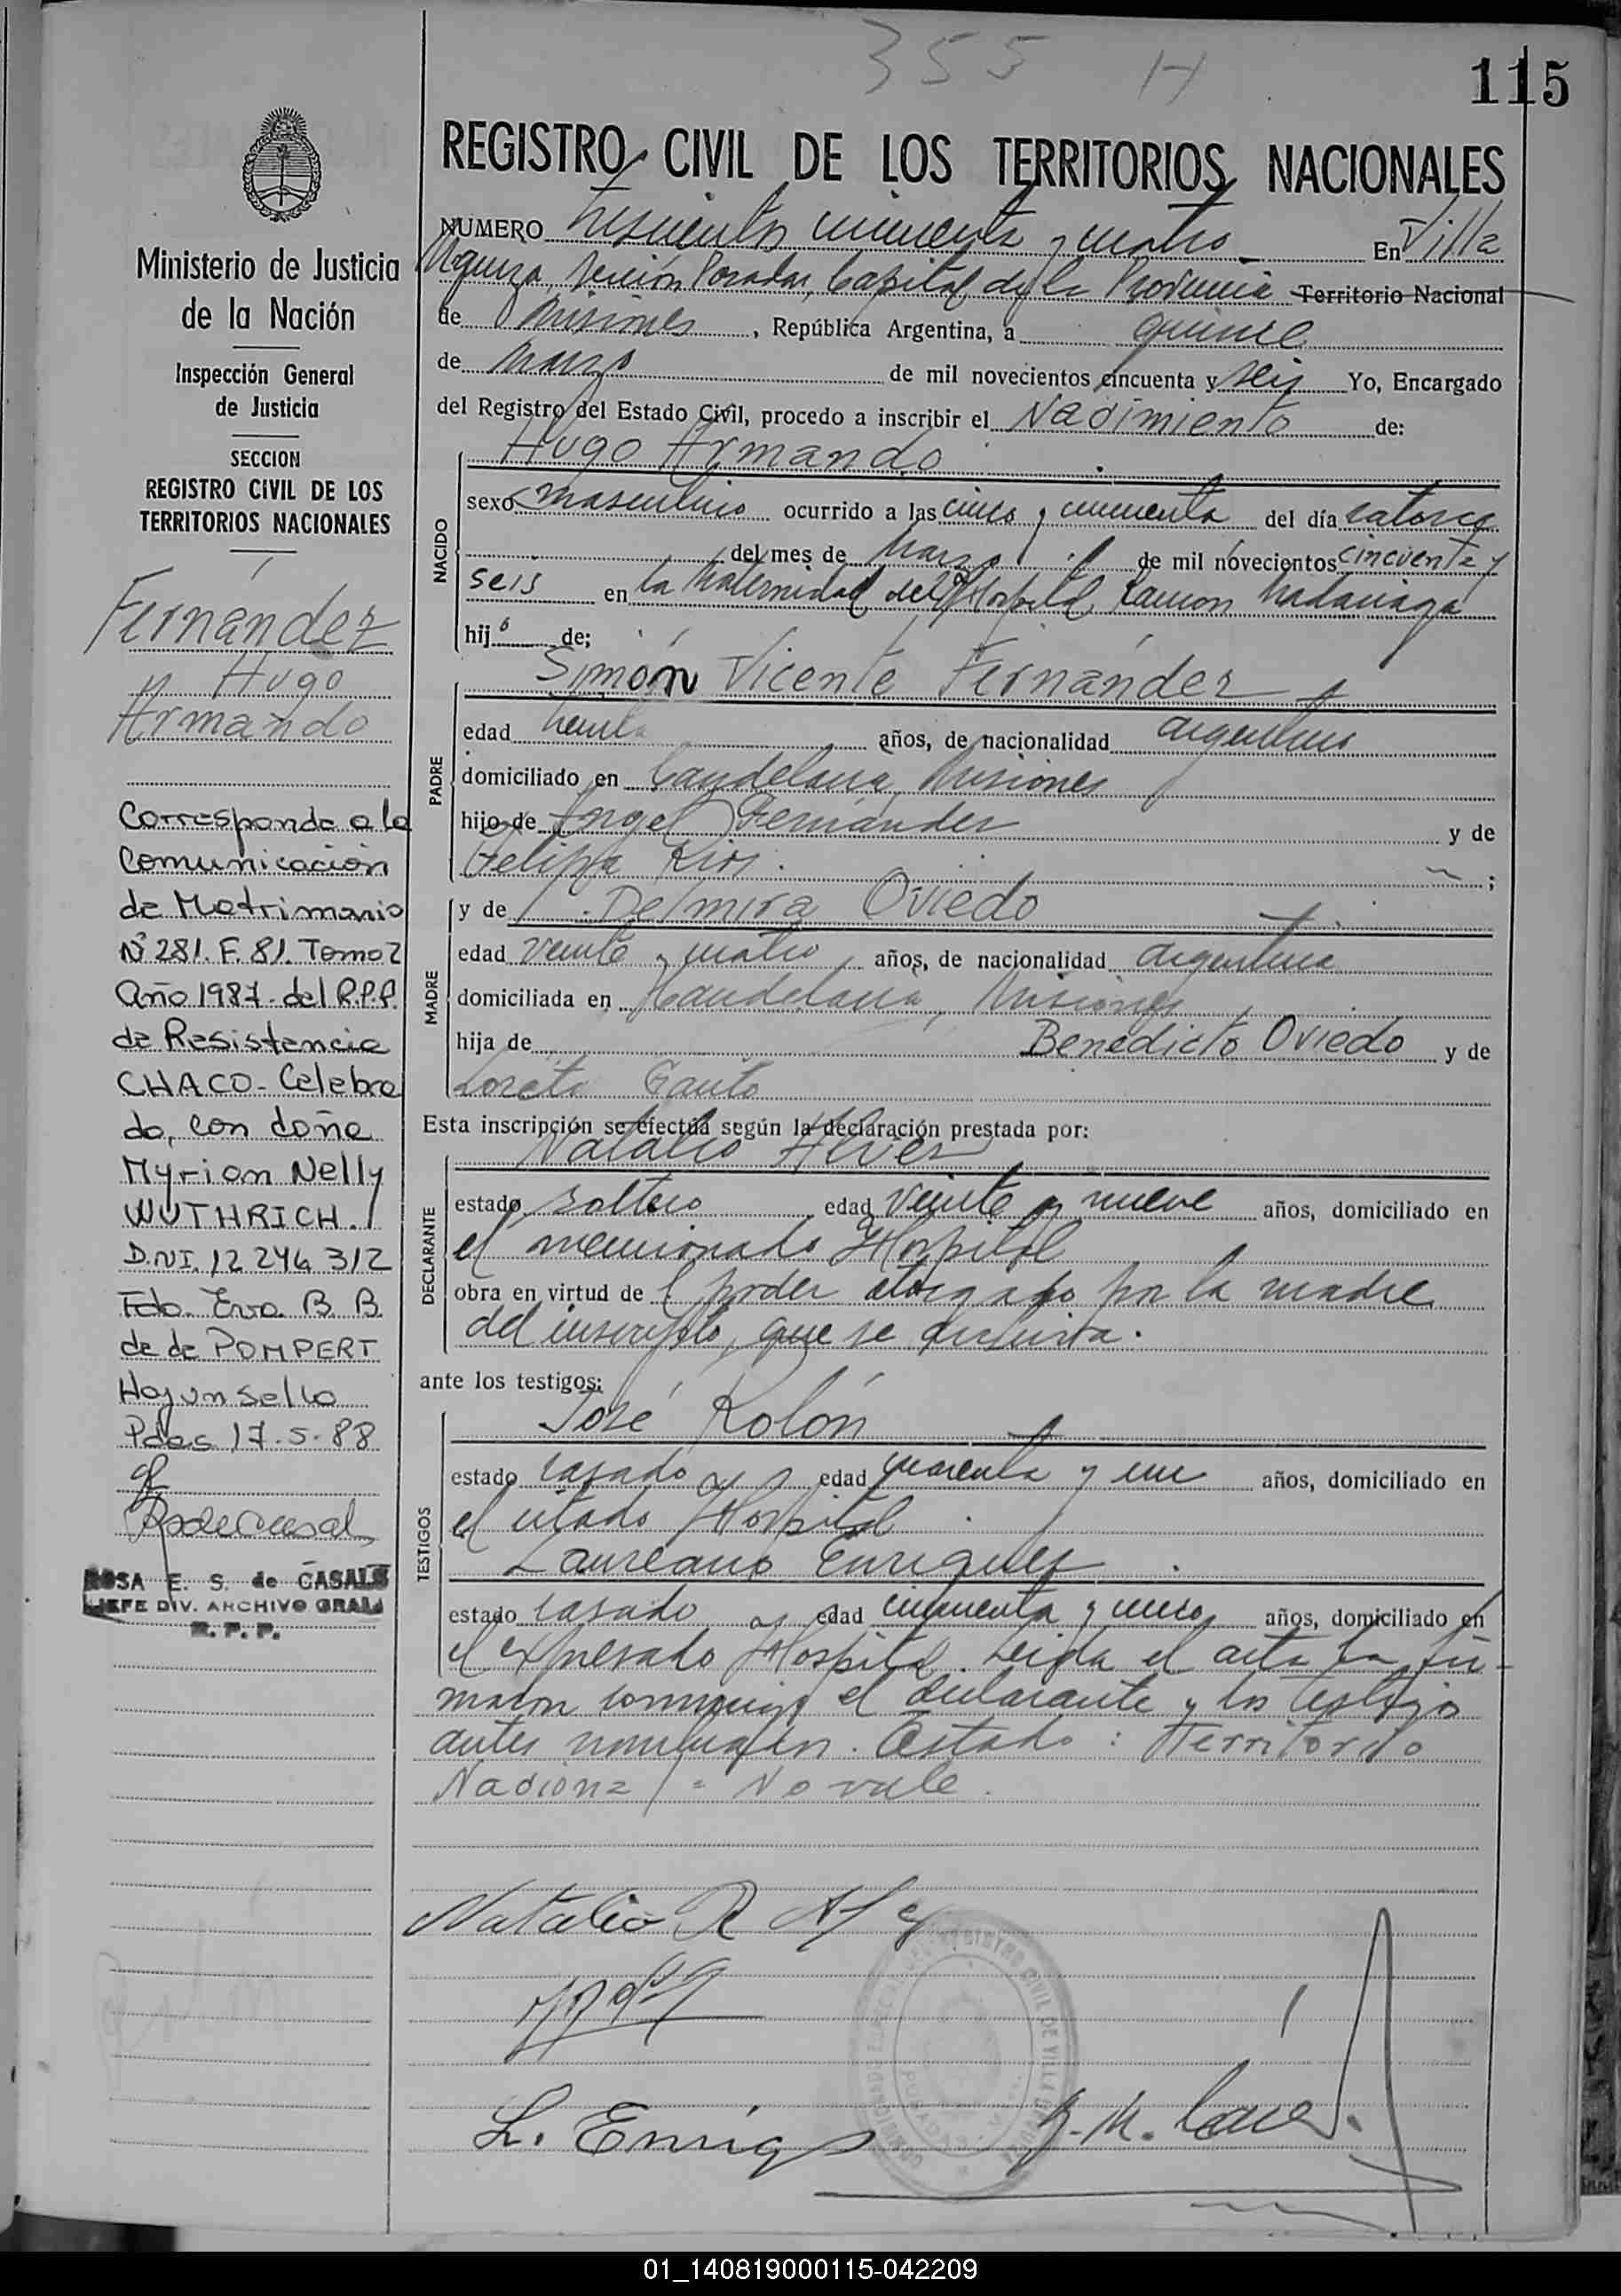 355 H
115
REGISTRO CIVIL DE LOS TERRITORIOS NACIONALES
NUMERO Trescientos cincuenta y cuatro En Villa
Urquiza, Sección Posadas, Capital de la Provincia Territorio Nacional
de Misiones, República Argentina, a quince
de Marzo de mil novecientos cincuenta y seis Yo, Encargado
del Registro del Estado Civil, procedo a inscribir el Nacimiento de:
Hugo Armando
NACIDO
sexo masculino ocurrido a las cinco y cincuenta del día catorce
del mes de Marzo de mil novecientos cincuenta y
seis en la Maternidad del Hospital Ramon Madariaga
hijo de;
Simón Vicente Fernández
PADRE
edad treinta años, de nacionalidad argentino
domiciliado en Candelaria, Misiones
hijo de Angel Fernández y de
Felipa Rios ;
MADRE
y de Delmira Oviedo
edad veinte y cuatro años, de nacionalidad argentina
domiciliada en Candelaria, Misiones
hija de Benedicto Oviedo y de
Loreta Gauto
Esta inscripción se efectúa según la declaración prestada por:
Natalio Alvez
DECLARANTE
estado soltero edad veinte y nueve años, domiciliado en
el mencionado Hospital
obra en virtud de l poder otorgado por la madre
del inscripto, que se archiva.
ante los testigos:
José Rolón
TESTIGOS
estado casado edad cuarenta y un años, domiciliado en
el citado Hospital
Laureano Enriquez
estado casado edad cincuenta y cinco años, domiciliado en
el expresado Hospital. Leida el acta la fir-
maron conmigo el declarante y los testigos
antes nombrados. Testado: Territorio
Nacional = No vale.
Natalio R
L. Enriq
Ministerio de Justicia
de la Nación
Inspección General
de Justicia
SECCION
REGISTRO CIVIL DE LOS
TERRITORIOS NACIONALES
Fernández
Hugo
Armando
Corresponde a la
Comunicación
de Matrimonio
Nº 281. F. 81. Tomo 2
Año 1987. del R.P.P.
de Resistencia
CHACO - Celebra
do, con doña
Myrian Nelly
WUTHRICH.
D.N.I. 12 246 312
Fdo. Eva B. B.
de de POMPERT
Hay un sello
Pdas 17.5.88
ROSA E. S. de CASALS
JEFE DIV. ARCHIVO GRAL
R. P. P.
01_140819000115-042209